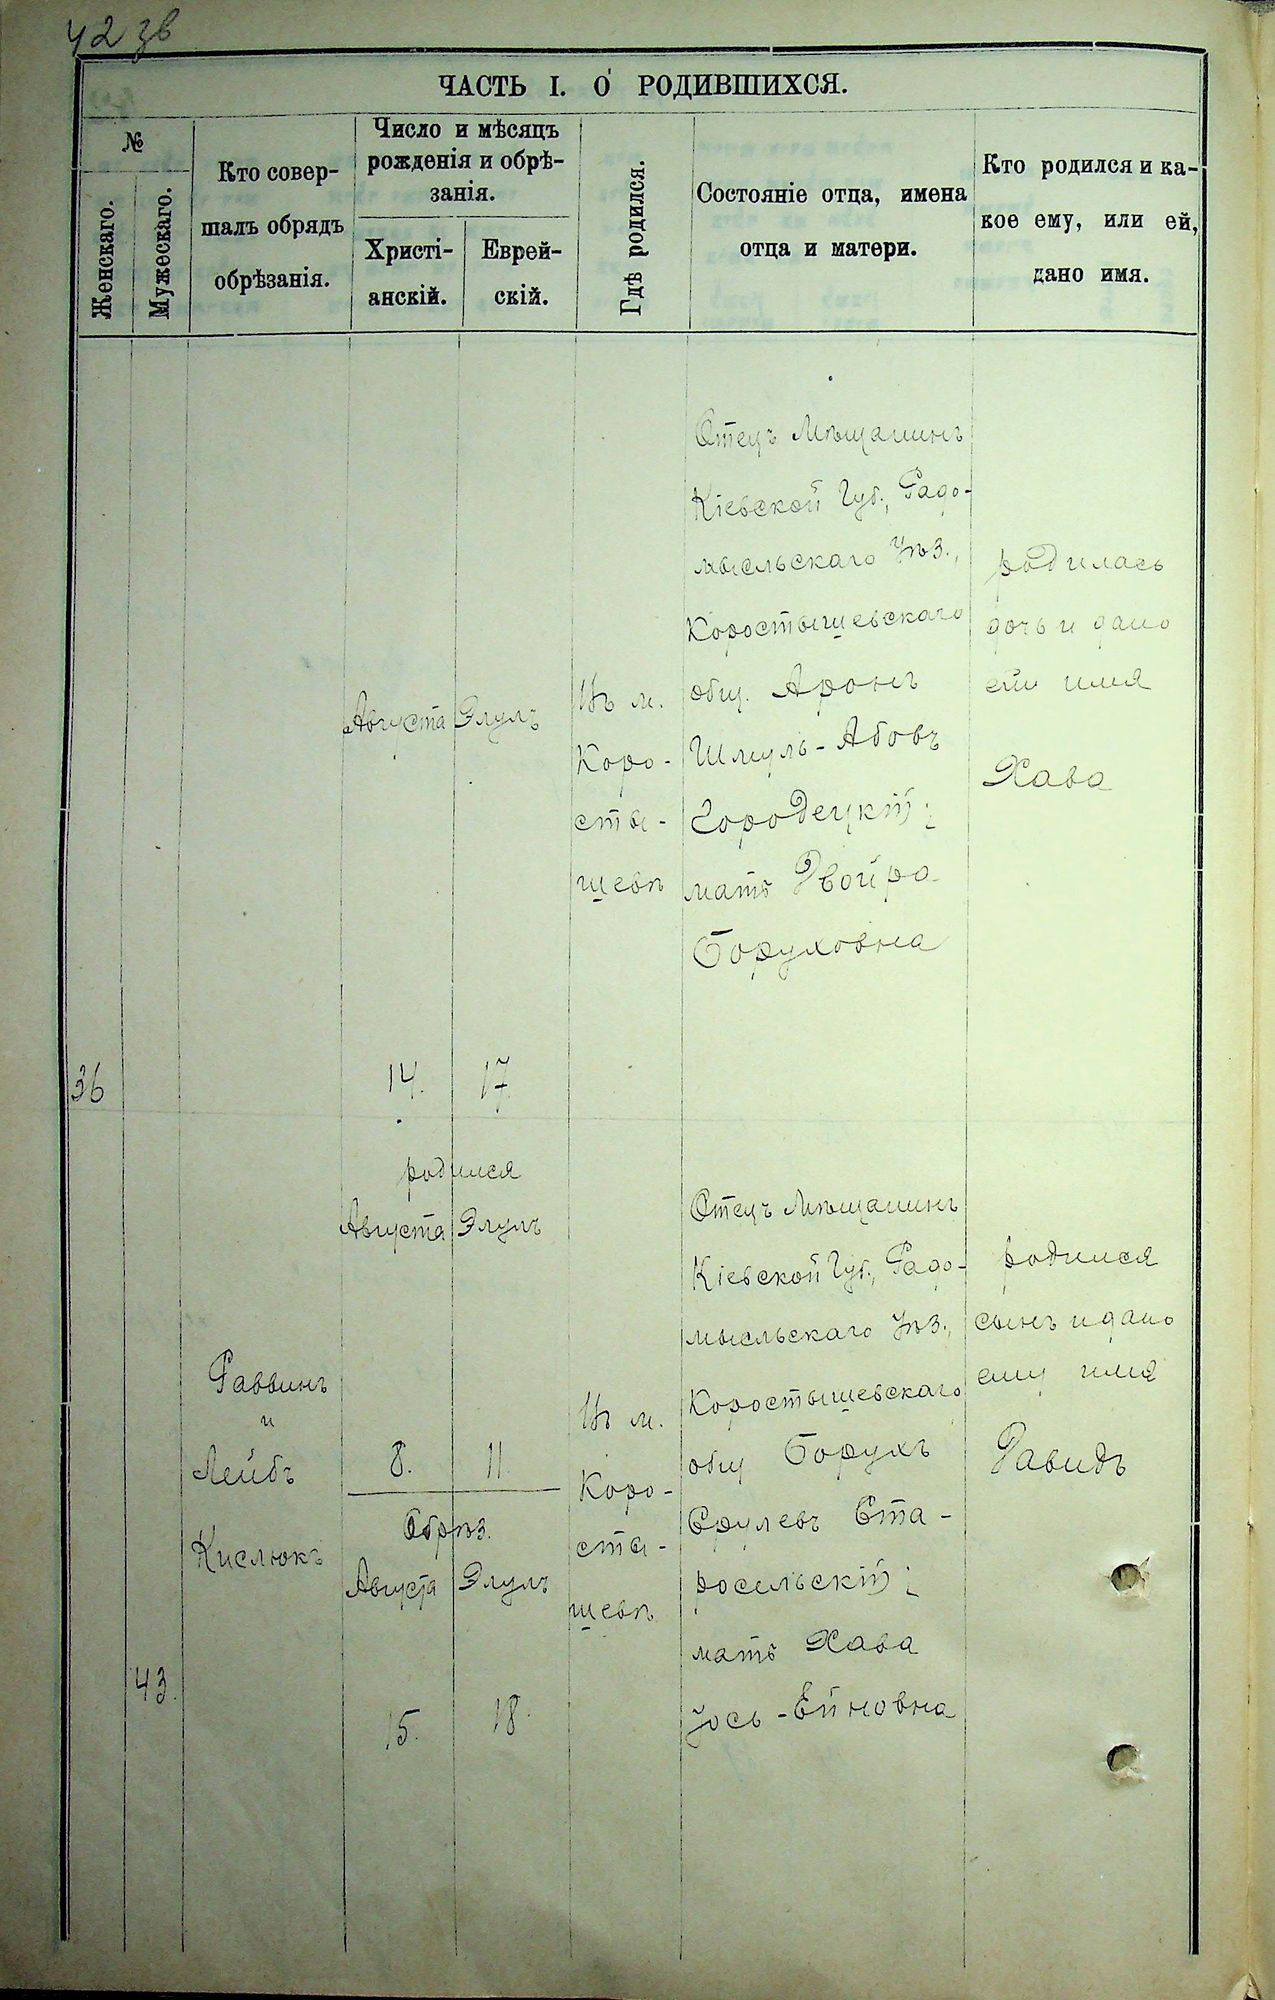 42 зв
ЧАСТЬ I. О РОДИВШИХСЯ.
№
Женскаго.
Мужескаго.
Кто совер-
шалъ обрядъ
обрѣзанія.
Число и мѣсяцъ
рожденія и обрѣ-
занія.
Христі-
анскій.
Еврей-
скій.
Гдѣ родился.
Состояніе отца, имена
отца и матери.
Кто родился и ка-
кое ему, или ей,
дано имя.
36
Августа
14.
Элулъ
17.
Въ м.
Коро-
сты-
шевѣ
Отецъ Мѣщанинъ
Кіевской Губ., Радо-
мысльскаго Уѣз.,
Коростышевскаго
общ. Аронъ
Шмуль-Абовъ
Городецкій;
мать Двойра
Боруховна
родилась
дочь и дано
ей имя
Хава
43.
Раввинъ
и
Лейбъ
Кислюкъ
родился
Августа Элулъ
8. 11.
Обрѣз.
Августа Элулъ
15. 18.
Въ м.
Коро-
сты-
шевѣ
Отецъ Мѣщанинъ
Кіевской Губ., Радо-
мысльскаго Уѣз.,
Коростышевскаго
общ Борухъ
Срулевъ Ста-
росельскій;
мать Хава
Іось-Ейновна
родился
сынъ и дано
ему имя
Давидъ